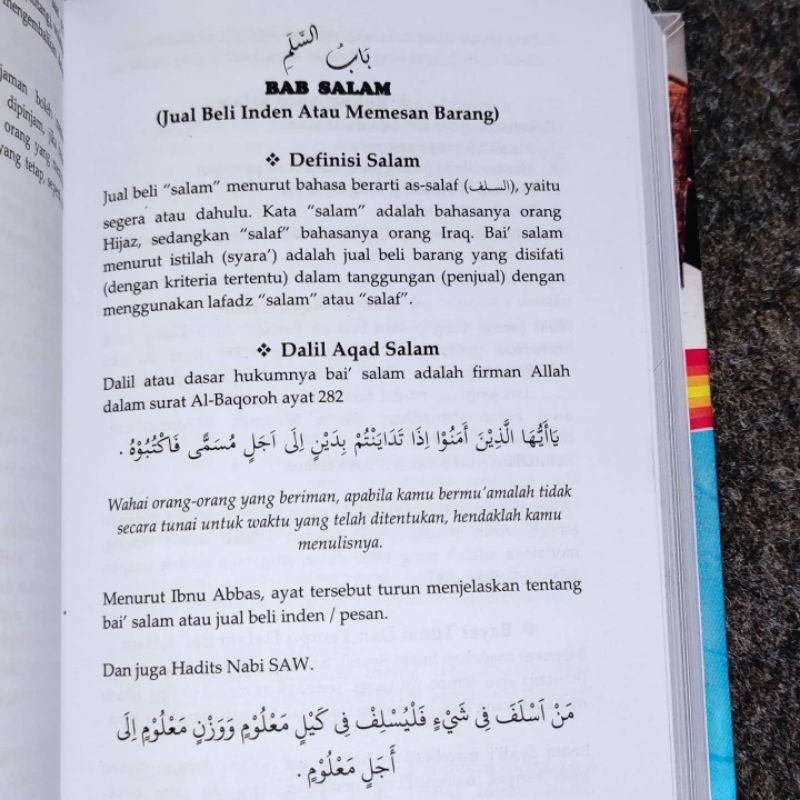 بَابُ السَّلَمِ
BAB SALAM
(Jual Beli Inden Atau Memesan Barang)
❖ Definisi Salam
Jual beli “salam” menurut bahasa berarti as-salaf (السلف), yaitu
segera atau dahulu. Kata “salam” adalah bahasanya orang
Hijaz, sedangkan “salaf” bahasanya orang Iraq. Bai’ salam
menurut istilah (syara’) adalah jual beli barang yang disifati
(dengan kriteria tertentu) dalam tanggungan (penjual) dengan
menggunakan lafadz “salam” atau “salaf”.
❖ Dalil Aqad Salam
Dalil atau dasar hukumnya bai’ salam adalah firman Allah
dalam surat Al-Baqoroh ayat 282
يَاأَيُّهَا الَّذِيْنَ اَمَنُوْا اِذَا تَدَايَنْتُمْ بِدَيْنٍ اِلَى اَجَلٍ مُسَمًّى فَاكْتُبُوْهُ .
Wahai orang-orang yang beriman, apabila kamu bermu’amalah tidak
secara tunai untuk waktu yang telah ditentukan, hendaklah kamu
menulisnya.
Menurut Ibnu Abbas, ayat tersebut turun menjelaskan tentang
bai’ salam atau jual beli inden / pesan.
Dan juga Hadits Nabi SAW.
مَنْ اَسْلَفَ فِى شَيْءٍ فَلْيُسْلِفْ فِى كَيْلٍ مَعْلُوْمٍ وَوَزْنٍ مَعْلُوْمٍ اِلَى
أَجَلٍ مَعْلُوْمٍ .